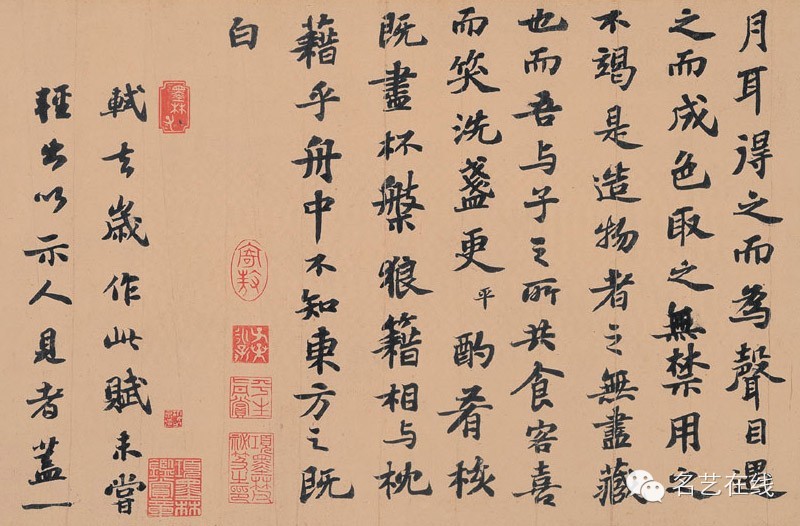 月耳得之而為聲目遇
之而成色取之無禁用之
不竭是造物者之無盡藏
也而吾与子之所共食客喜
而笑洗盞更平酌肴核
既盡杯盤狼籍相与枕
藉乎舟中不知東方之既
白
軾去歲作此賦未嘗
輕出以示人見者蓋一
墨林
名艺在线